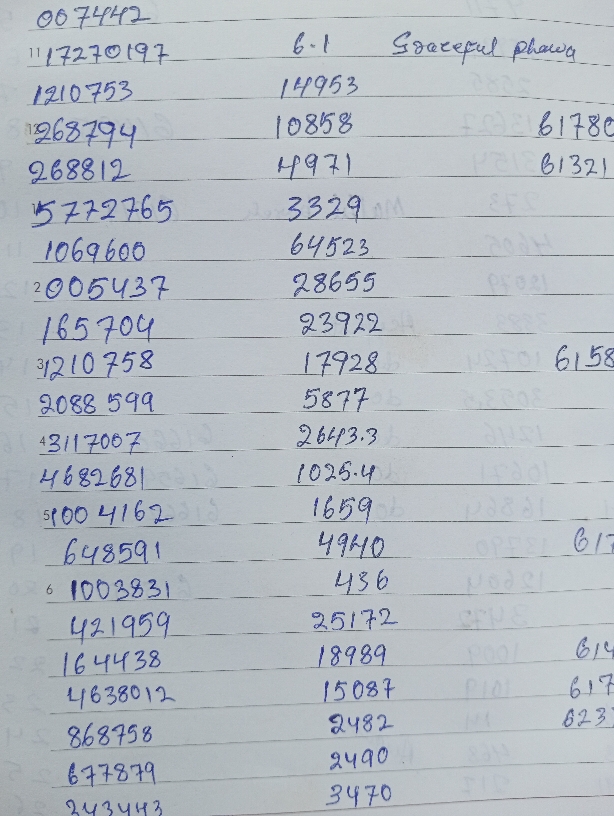 007442
11 17270197 6.1
1210753 14953
12 268794 10858 61780
268812 4971 61321
1 5772765 3329
1069600 64523
2 005437 28655
165704 23922
3 1210758 17928 6158
2088599 5877
4 3117007 2643.3
4682681 1025.4
5 1004162 1659
648591 4940 617
6 1003831 436
421959 25172
164438 18989 614
4638012 15087 617
868758 2482 623
677879 2490
343443 3470